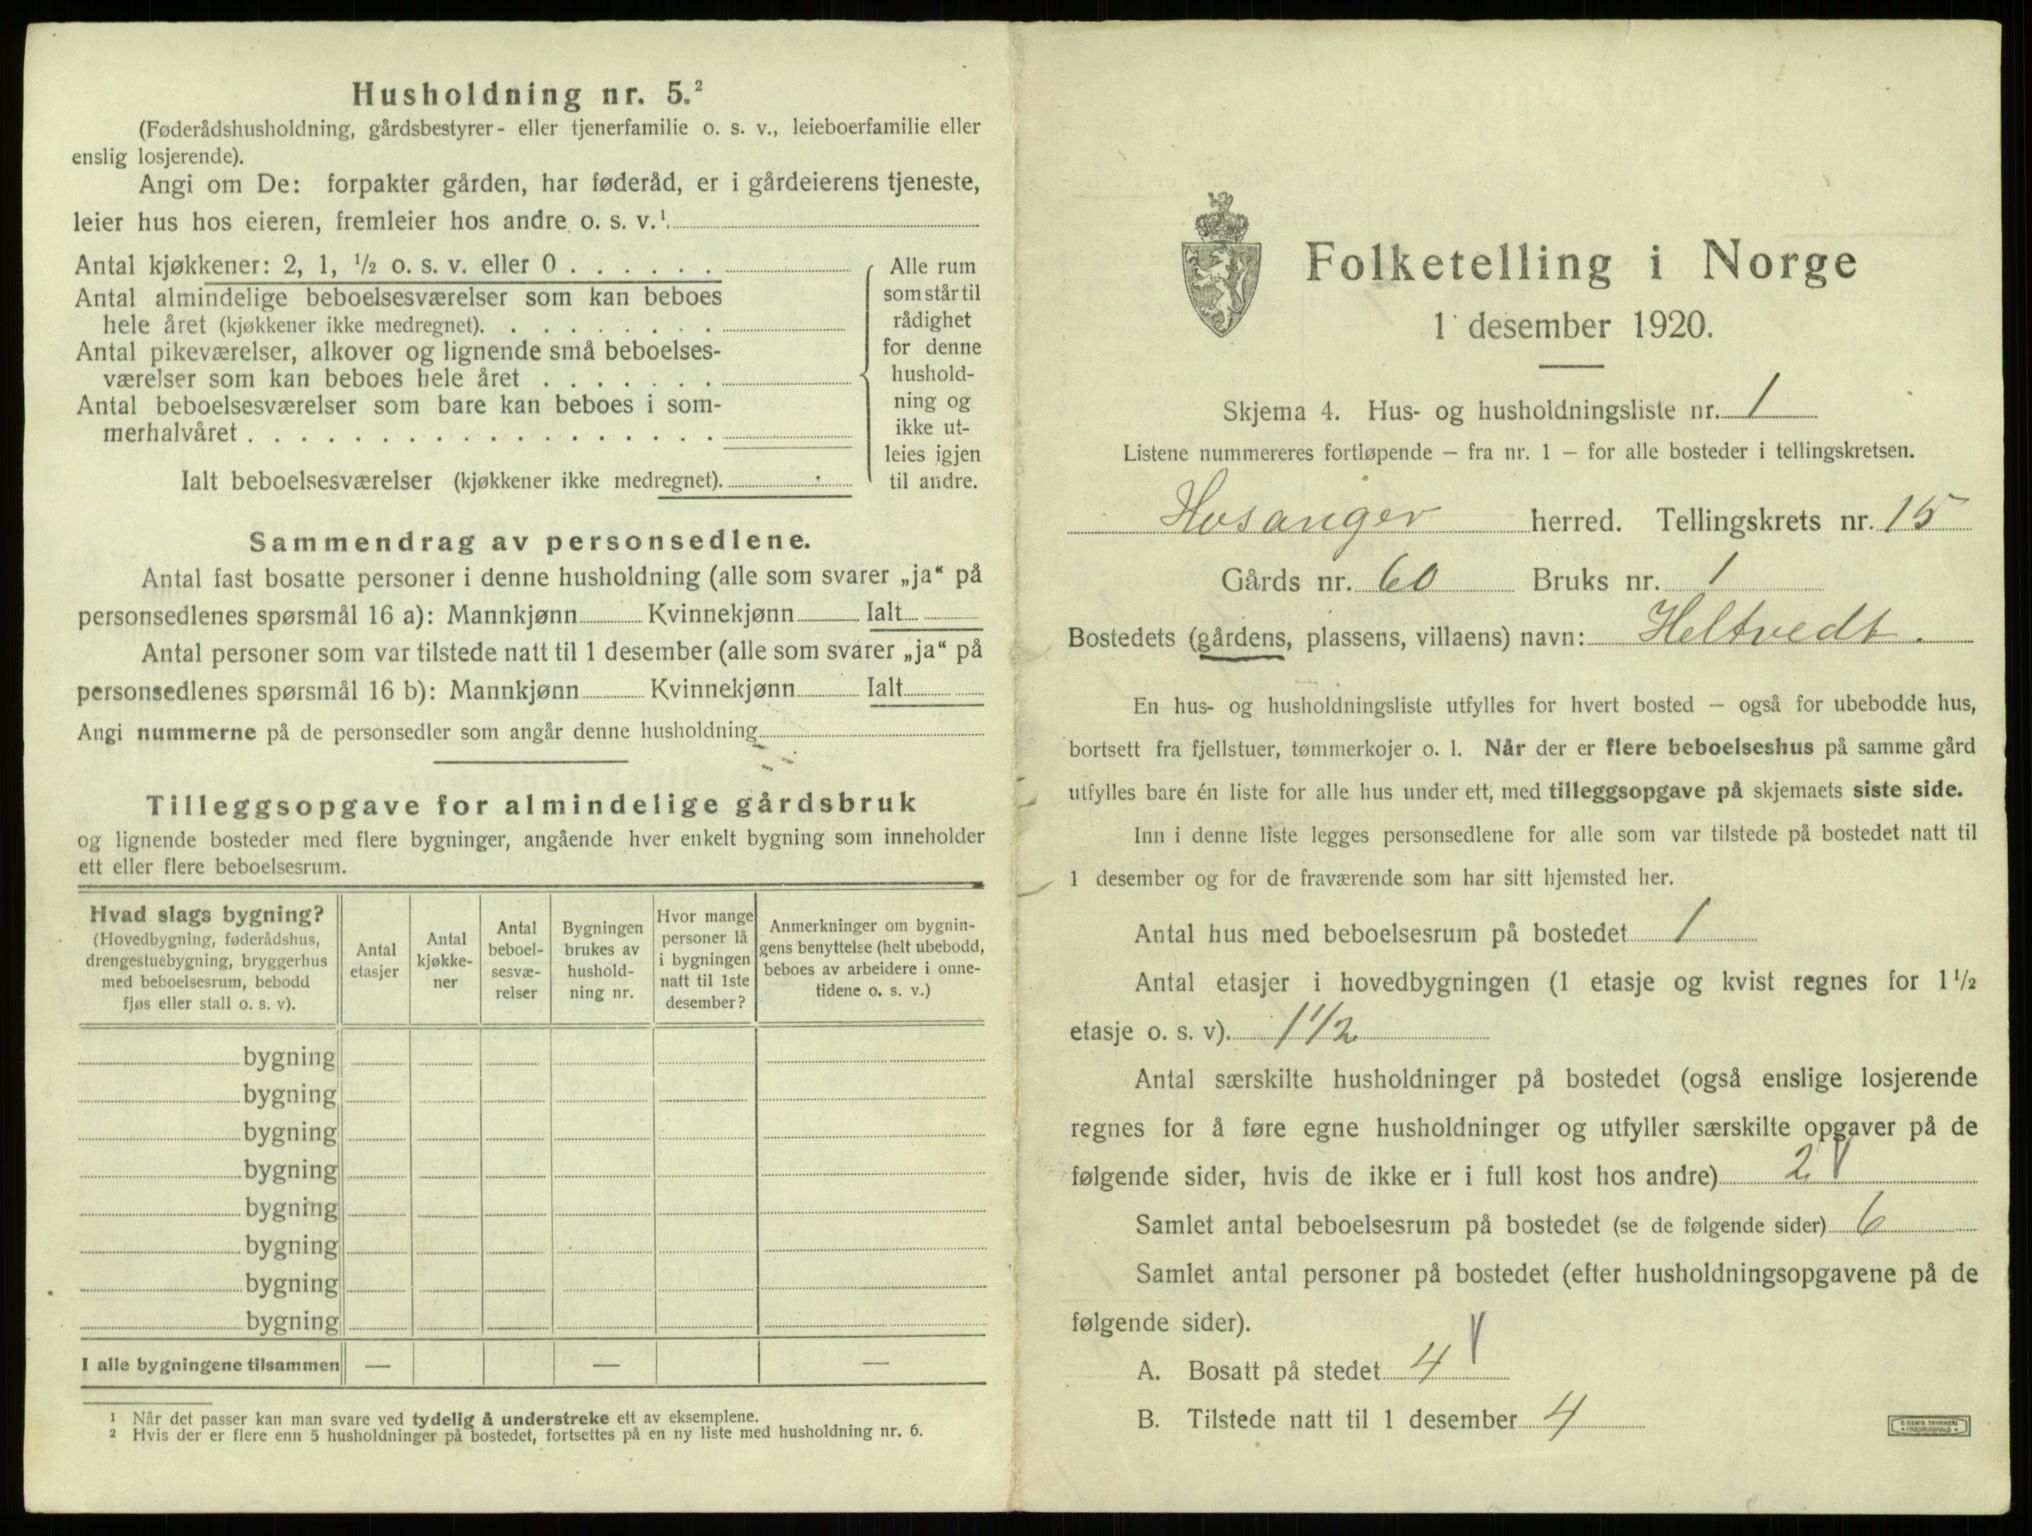 Husholdning nr. 5.²
(Føderådshusholdning, gårdsbestyrer- eller tjenerfamilie o. s. v., leieboerfamilie eller
enslig losjerende).
Angi om De: forpakter gården, har føderåd, er i gårdeierens tjeneste,
leier hus hos eieren, fremleier hos andre o. s. v.¹
Antal kjøkkener: 2, 1, ½ o. s. v. eller 0
Antal almindelige beboelsesværelser som kan beboes
hele året (kjøkkener ikke medregnet).
Antal pikeværelser, alkover og lignende små beboelses-
værelser som kan beboes hele året
Antal beboelsesværelser som bare kan beboes i som-
merhalvåret
Ialt beboelsesværelser (kjøkkener ikke medregnet).
Alle rum
som står til
rådighet
for denne
hushold-
ning og
ikke ut-
leies igjen
til andre.
Sammendrag av personsedlene.
Antal fast bosatte personer i denne husholdning (alle som svarer „ja“ på
personsedlenes spørsmål 16 a): Mannkjønn Kvinnekjønn Ialt
Antal personer som var tilstede natt til 1 desember (alle som svarer „ja“ på
personsedlenes spørsmål 16 b): Mannkjønn Kvinnekjønn Ialt
Angi nummerne på de personsedler som angår denne husholdning
Tilleggsopgave for almindelige gårdsbruk
og lignende bosteder med flere bygninger, angående hver enkelt bygning som inneholder
ett eller flere beboelsesrum.
Hvad slags bygning?
(Hovedbygning, føderådshus,
drengestuebygning, bryggerhus
med beboelsesrum, bebodd
fjøs eller stall o. s. v).
Antal
etasjer
Antal
kjøkke-
ner
Antal
beboel-
sesvæ-
relser
Bygningen
brukes av
hushold-
ning nr.
Hvor mange
personer lå
i bygningen
natt til 1ste
desember?
Anmerkninger om bygnin-
gens benyttelse (helt ubebodd,
beboes av arbeidere i onne-
tidene o. s. v.)
bygning
bygning
bygning
bygning
bygning
bygning
bygning
bygning
I alle bygningene tilsammen — — —
¹ Når det passer kan man svare ved tydelig å understreke ett av eksemplene.
² Hvis der er flere enn 5 husholdninger på bostedet, fortsettes på en ny liste med husholdning nr. 6.
Folketelling i Norge
1 desember 1920.
Skjema 4. Hus- og husholdningsliste nr. 1
Listene nummereres fortløpende – fra nr. 1 – for alle bosteder i tellingskretsen.
Hosanger herred. Tellingskrets nr. 15
Gårds nr. 60 Bruks nr. 1
Bostedets (gårdens, plassens, villaens) navn: Heltvedt.
En hus- og husholdningsliste utfylles for hvert bosted – også for ubebodde hus,
bortsett fra fjellstuer, tømmerkojer o. l. Når der er flere beboelseshus på samme gård
utfylles bare én liste for alle hus under ett, med tilleggsopgave på skjemaets siste side.
Inn i denne liste legges personsedlene for alle som var tilstede på bostedet natt til
1 desember og for de fraværende som har sitt hjemsted her.
Antal hus med beboelsesrum på bostedet 1
Antal etasjer i hovedbygningen (1 etasje og kvist regnes for 1½
etasje o. s. v). 1½
Antal særskilte husholdninger på bostedet (også enslige losjerende
regnes for å føre egne husholdninger og utfyller særskilte opgaver på de
følgende sider, hvis de ikke er i full kost hos andre) 2
Samlet antal beboelsesrum på bostedet (se de følgende sider) 6
Samlet antal personer på bostedet (efter husholdningsopgavene på de
følgende sider).
A. Bosatt på stedet 4
B. Tilstede natt til 1 desember 4